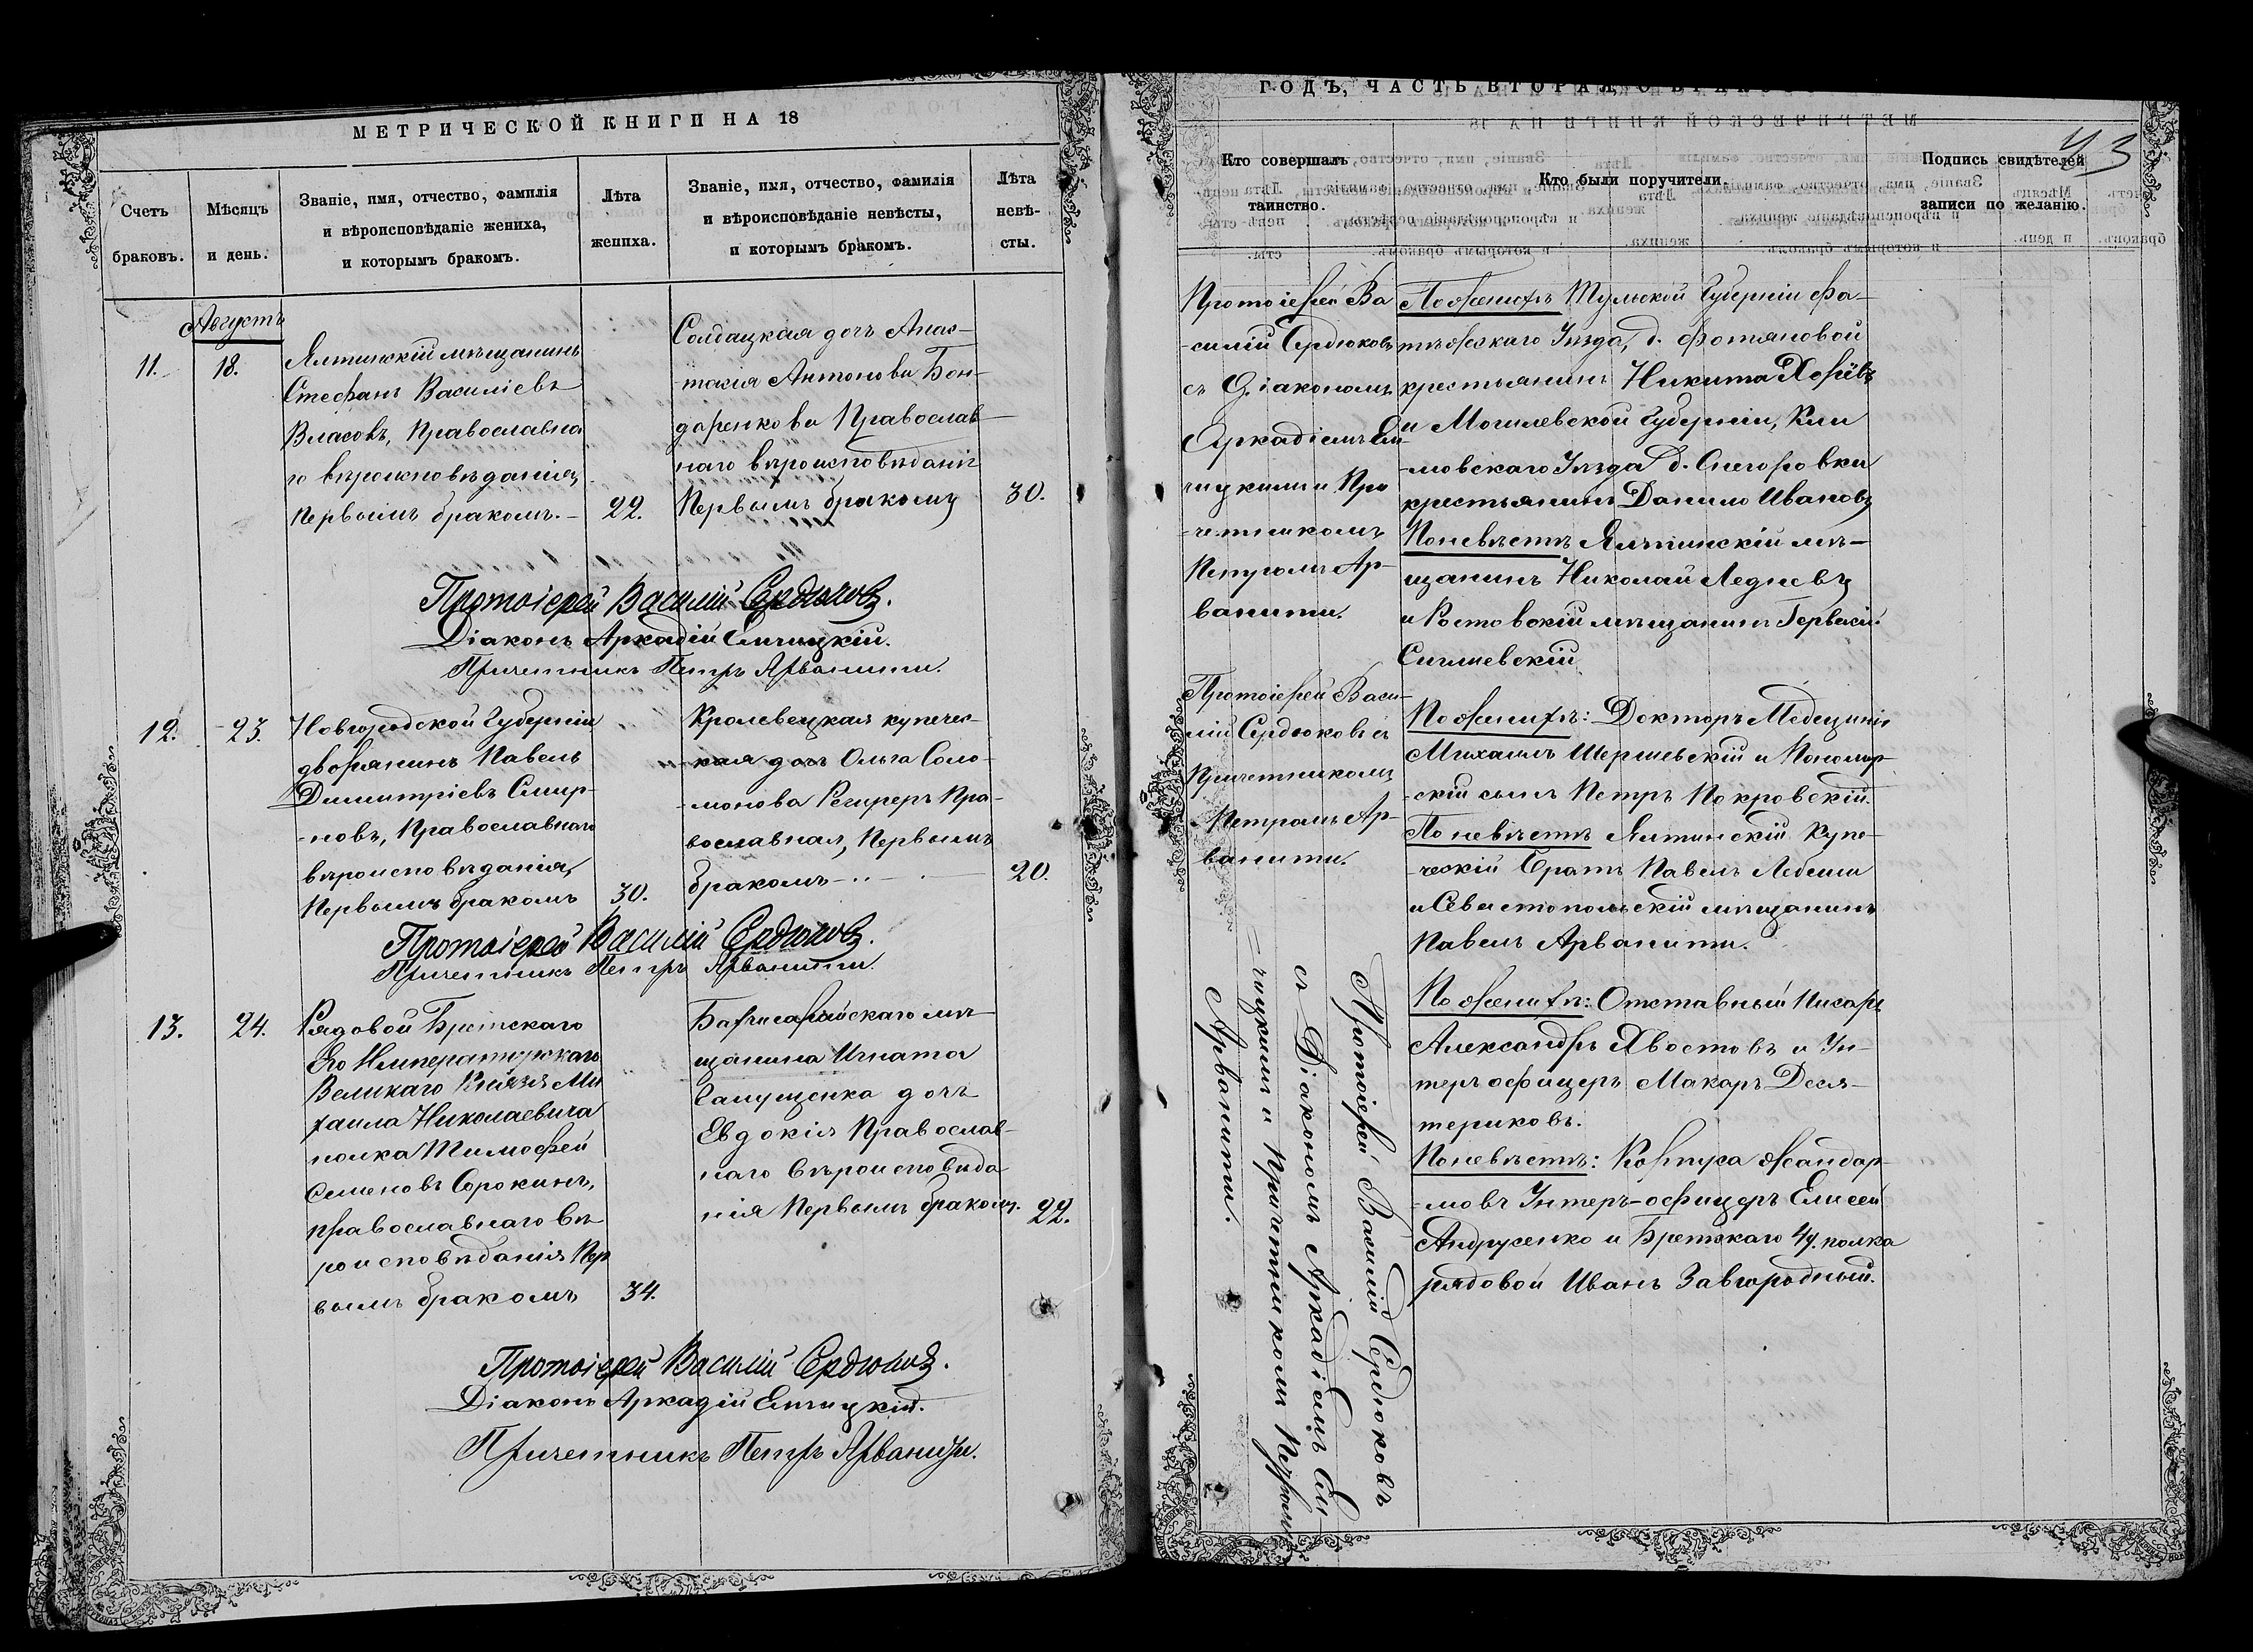 МЕТРИЧЕСКОЙ КНИГИ НА 18
Счетъ
браковъ.
Мѣсяцъ
и день.
Званіе, имя, отчество, фамилія
и вѣроисповѣданіе жениха,
и которымъ бракомъ.
Лѣта
жениха.
Званіе, имя, отчество, фамилія
и вѣроисповѣданіе невѣсты,
и которымъ бракомъ.
Лѣта
невѣ-
сты.
Августъ
11.
18.
Ялтинскій мѣщанинъ
Стефанъ Василіевъ
Власовъ, Православна
го вѣроисповѣданія,
Первымъ бракомъ.-
22.
Солдацкая дочъ Анас-
-тасія Антонова Бон-
даренкова Православ-
наго вѣроисповѣданія
Первымъ бракомъ
30.
Протоіерей Василій Сердюковъ.
Діаконъ Аркадій Ельчицкій.
Причетникъ Петръ Арванити.
12.
23.
Новгородской Губерніи
дворянинъ Павелъ
Димитріевъ Смир-
-новъ, Православнаго
вѣроисповѣданія,
Первымъ бракомъ
30.
Кролевецкая купечес-
-кая дочъ Ольга Соло-
-монова Регирерг Пра-
вославная, Первымъ
бракомъ
20.
Протоіерей Василій Сердюковъ.
Причетникъ Петръ Арванити.
13.
24.
Рядовой Брестскаго
Его Императорскаго
Великаго Князя Ми
хаила Николаевича
полка Тимофей
Семеновъ Сорокинъ,
православнаго вѣ
роисповѣданія Пер
вымъ бракомъ
34.
Бахчисарайскаго мѣ-
щанина Игната
Галущенка дочъ
Евдокія Православ-
наго вѣроисповѣда
нія Первымъ бракомъ.
22.
Протоіерей Василій Сердюковъ.
Діаконъ Аркадій Ельчицкій.
Причетникъ Петръ Арванити.
ГОДЪ, ЧАСТЬ ВТОРАЯ, О
43
Кто совершалъ
таинство.
Кто были поручители.
Подпись свидѣтелей
записи по желанію.
Протоіерей Ва
-силій Сердюковъ
съ Діакономъ
Аркадіемъ Ель-
чицкимъ и При
-четникомъ
Петромъ Ар-
ванити.
По женихѣ Тульской Губерніи
Уѣзда, д. Фотяновой
крестьянинъ Никита
и Могилевской Губерніи, Кли
-мовскаго Уѣзда д.
крестьянинъ Данило Ивановъ
По невѣстѣ Ялтинскій мѣ-
щанинъ Николай Ледневъ
и Ростовскій мѣщанинъ
Протоіерей Васи-
лій Сердюковъ съ
Причетникомъ
Петромъ Ар-
ванити.
По женихѣ: Докторъ Медецины
Михаилъ Шершевскій и Пономар-
-скій сынъ Петръ Покровскій.
По невѣстѣ Ялтинскій Купе-
-ческій братъ Павелъ Лебеши
и Севастопольскій мѣщанинъ
Павелъ Арванити.
Протоіерей Василій Сердюковъ
съ Діакономъ Аркадіемъ Ель
=чицкимъ и Причетникомъ Петромъ
Арванити.
По женихѣ: Отставный Писарь
Александръ Хвостовъ и Ун-
теръ офицеръ Макаръ Деся-
териковъ.
По невѣстѣ: Корпуса жандар-
-мовъ Унтеръ-офицеръ Елисей
Андрусенко и Брестскаго полка
рядовой Иванъ Завгородный.